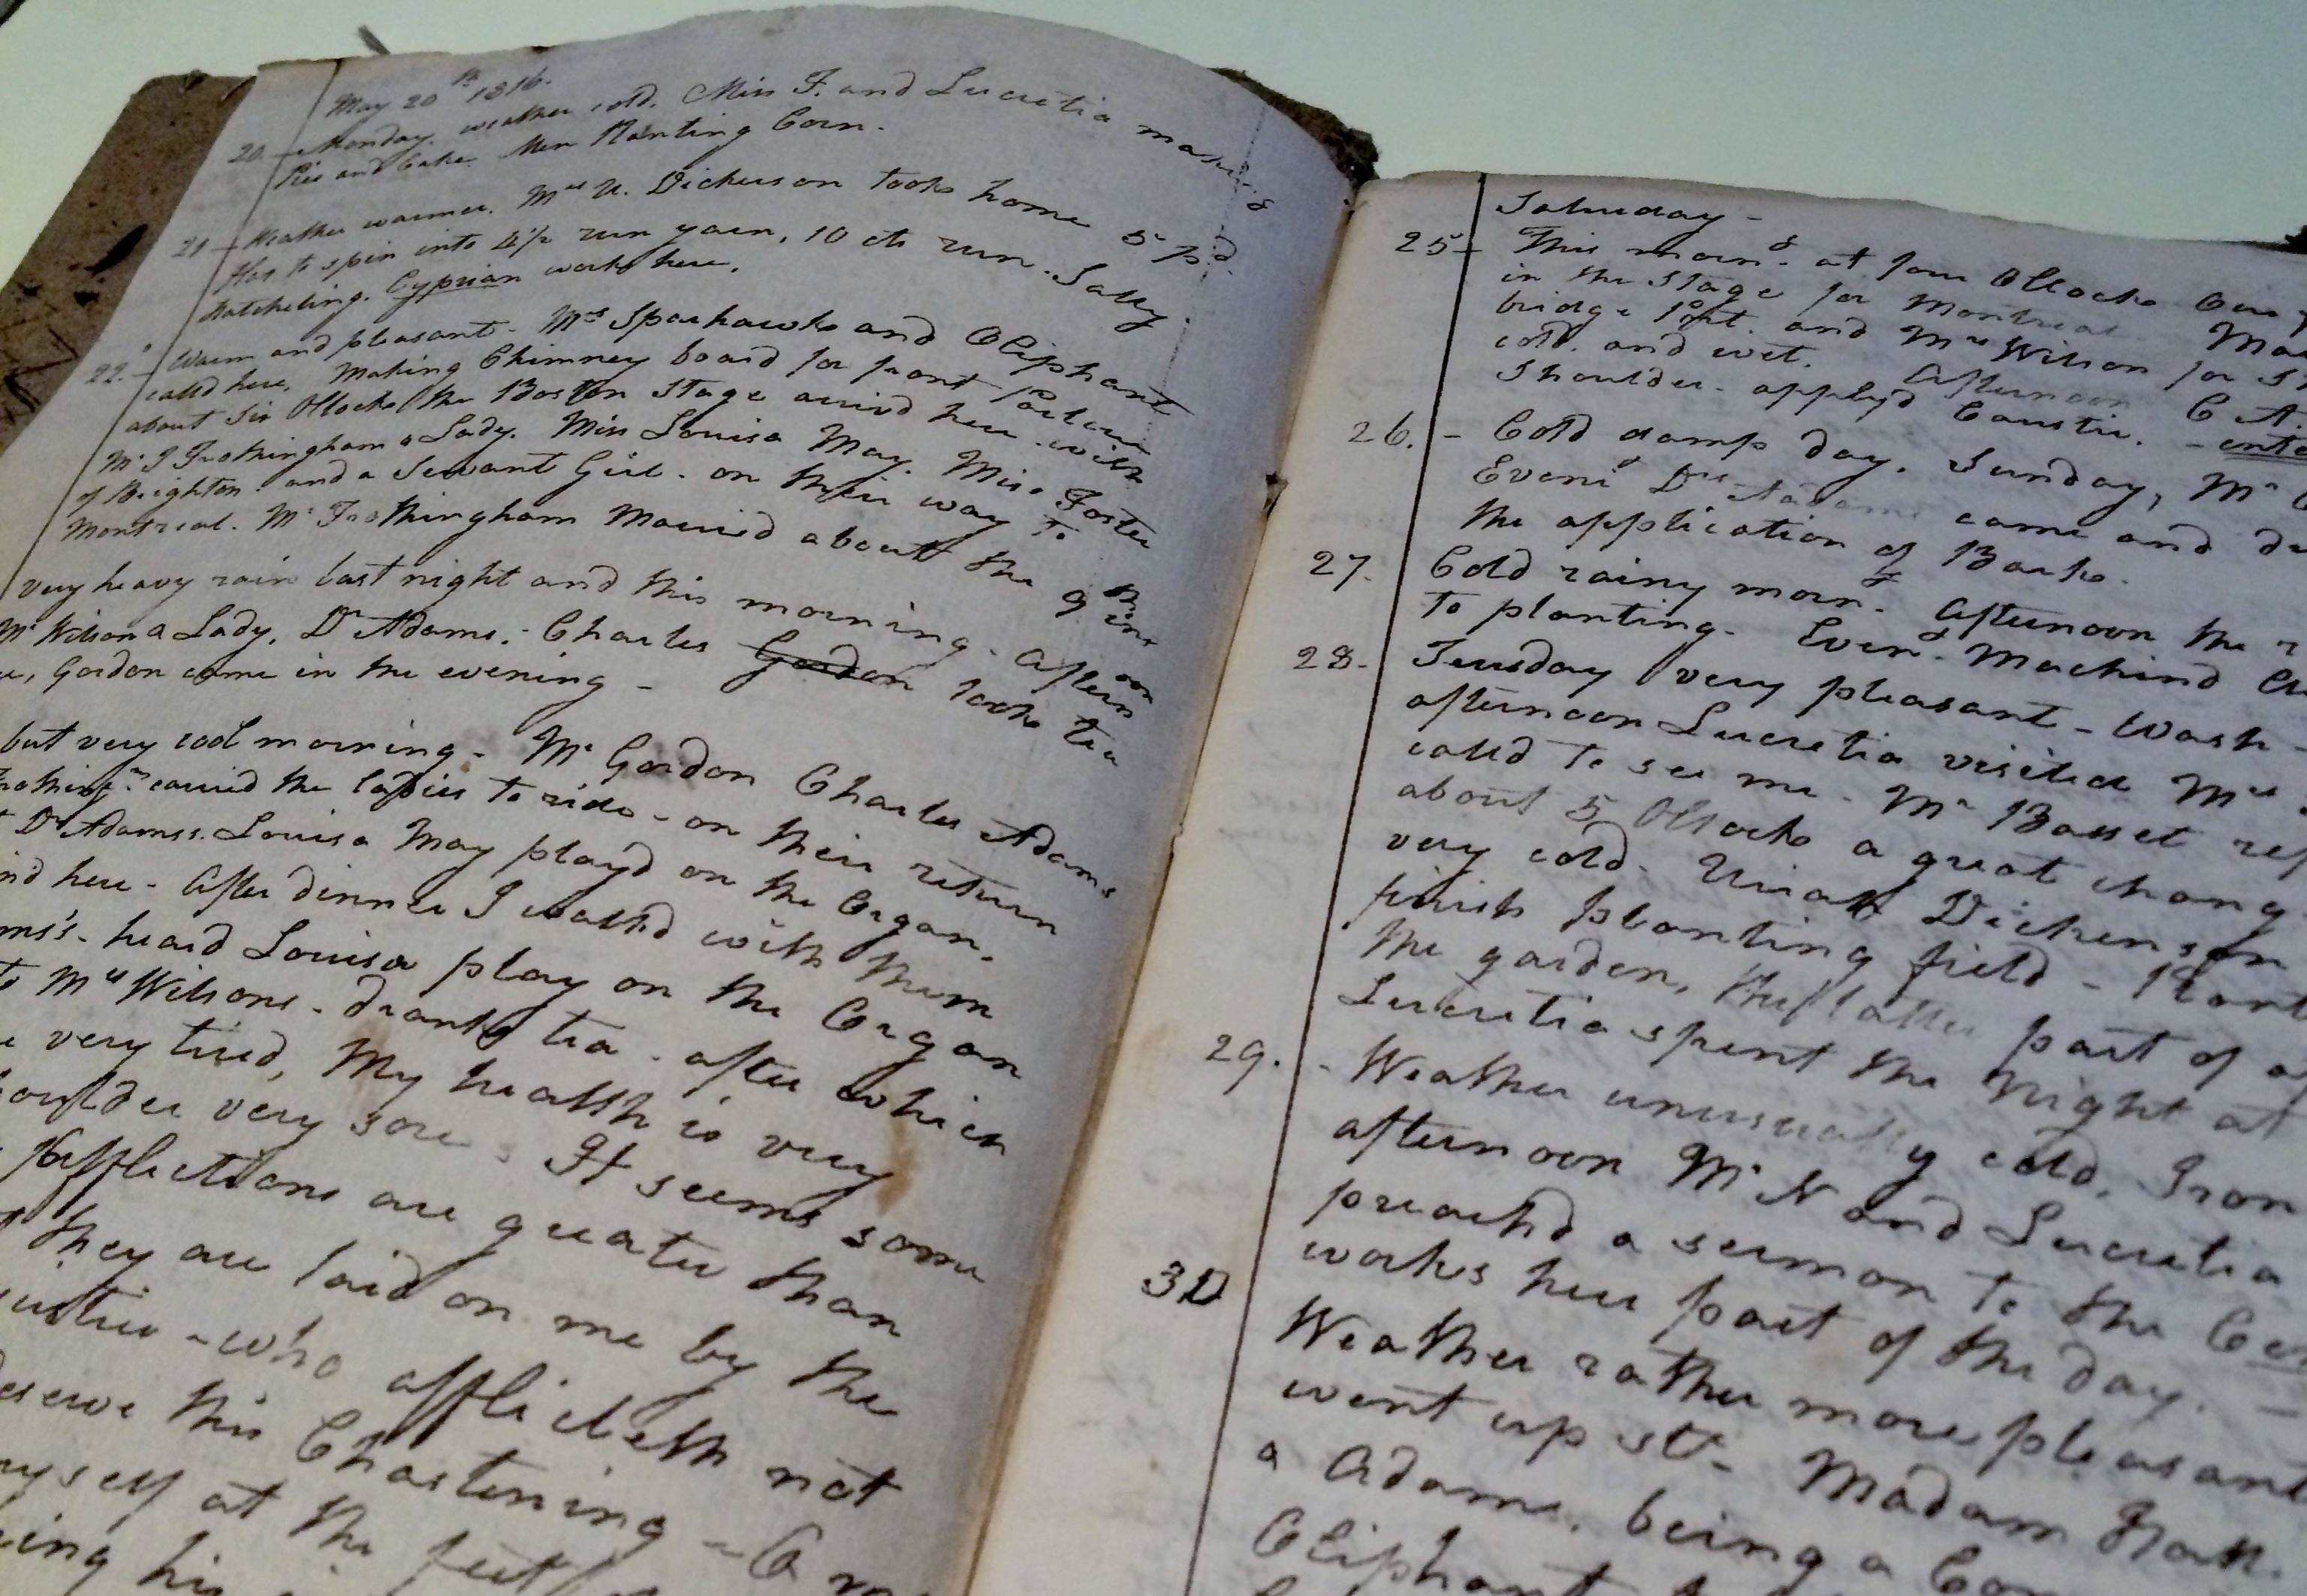 May 20th 1816.
20 - Monday. weather cold. Miss F. and Lucretia making
Pies and Cake. Men Planting Corn.
21 - Weather warmer. Mrs U. Dickerson took home 5 pd.
flax to spin into run yarn, 10 cts run. Sally
Hatcheling. Cyprian works here.
22. - Warm and pleasant - Mrs Sparhawk and Oliphant
calld here. Making Chimney board for front Parlour
about Six Oclock the Boston Stage arrivd here with
Mr J Frothingham & Lady. Miss Louisa May. Miss Foster
of Brighton. and a Servant Girl. on their way to
Montreal. Mr Frothingham Married about the 9th inst
very heavy rain last night and this morning. Afternoon
Mr Wilson & Lady, Dr Adams, Charles Gordon took tea
Gordon came in the evening -
but very cool morning - Mr Gordon Charles Adams
carried the ladies to ride - on their return
Dr Adamss. Louisa May playd on the Organ.
here - After dinner I walkd with them
heard Louisa play on the Organ
Mrs Wilsons - drank tea - after which
very tired, My health is very
very sore. It seems some
afflictions are greater than
they are laid on me by the
who afflicteth not
this Chastening -
at the feet
his
Saturday -
25 - This morng. at four Oclock
in the Stage for Montreal
bridge Port. and Mrs Wilson for
cold. and wet. Afternoon C A.
Shoulder - applyd Caustic. -
26. - Cold damp day. Sunday, Mr
Eveng Drs Adams came and
the application of Bark.
27. Cold rainy morng. Afternoon the
to planting. Eveng. Machind
28. Tuesday very pleasant - Wash -
afternoon Lucretia visited Mrs
calld to see me - Mr Basset
about 5 Oclock a great
very cold. Uriah Dickenson
finish planting field -
the garden, the latter part of
Lucretia spent the Night at
29. - Weather unusually cold. Iron
afternoon Mr N and Lucretia
preachd a sermon to the
works here part of the day. -
30 Weather rather more pleasant
went up str - Madam
a Adams. being a
Oliphant